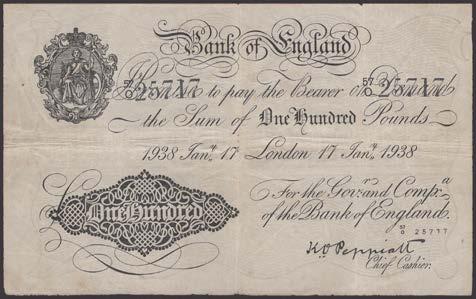 Bank of England
to pay the Bearer on Demand
the Sum of One Hundred Pounds.
1938 Jany. 17 London 17 Jany. 1938
For the Govr. and Compa.
of the Bank of England.
One Hundred
K.O. Peppiatt
Chief Cashier.